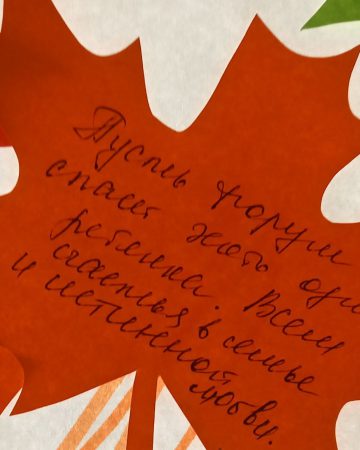 Пусть форум
спасет хоть одн
ребенка. Всем
счастья в семье
и истинной
любви.